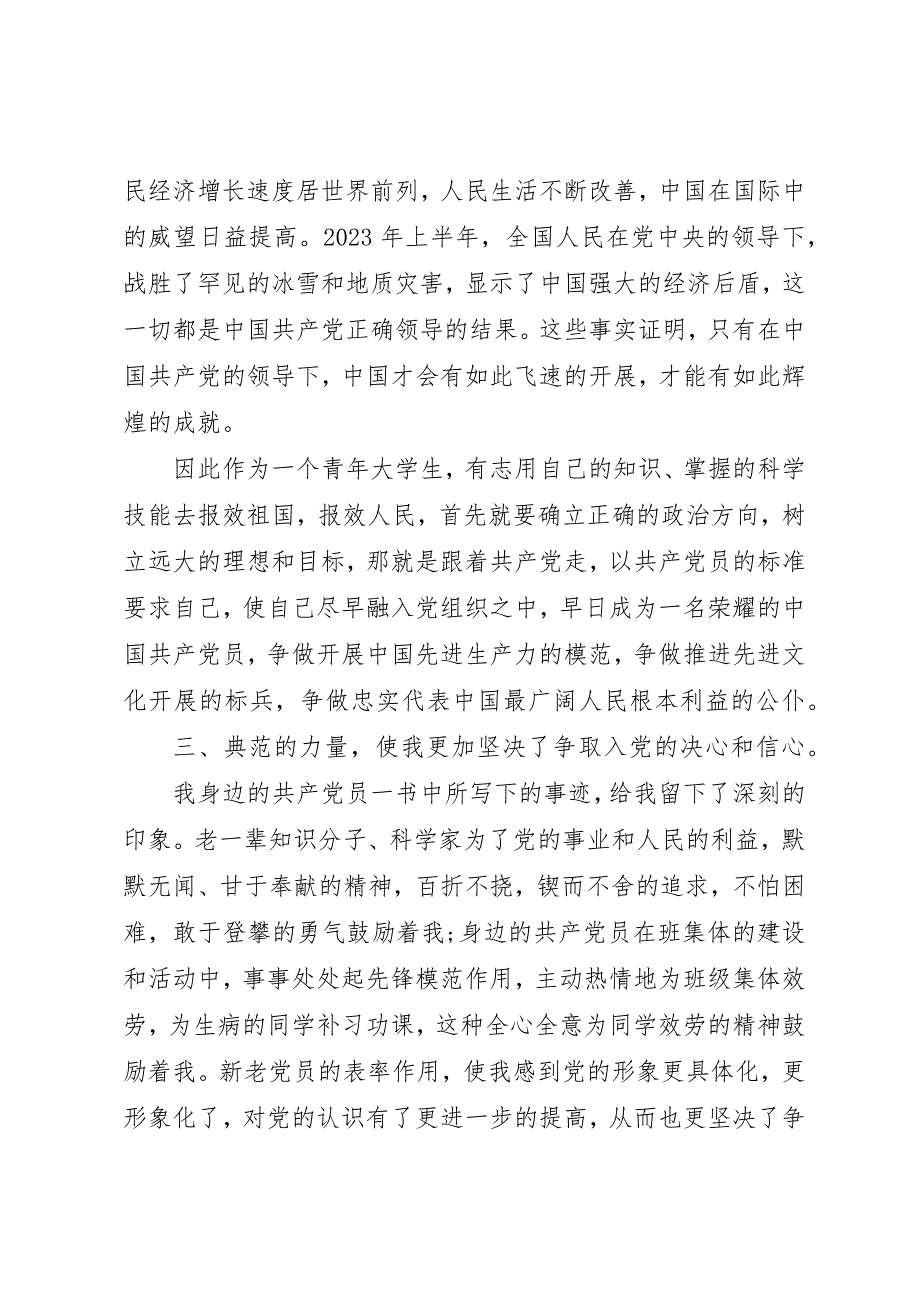 民经济增长速度居世界前列，人民生活不断改善，中国在国际中
的威望日益提高。2023 年上半年，全国人民在党中央的领导下，
战胜了罕见的冰雪和地质灾害，显示了中国强大的经济后盾，这
一切都是中国共产党正确领导的结果。这些事实证明，只有在中
国共产党的领导下，中国才会有如此飞速的开展，才能有如此辉
煌的成就。
因此作为一个青年大学生，有志用自己的知识、掌握的科学
技能去报效祖国，报效人民，首先就要确立正确的政治方向，树
立远大的理想和目标，那就是跟着共产党走，以共产党员的标准
要求自己，使自己尽早融入党组织之中，早日成为一名荣耀的中
国共产党员，争做开展中国先进生产力的模范，争做推进先进文
化开展的标兵，争做忠实代表中国最广阔人民根本利益的公仆。
三、典范的力量，使我更加坚决了争取入党的决心和信心。
我身边的共产党员一书中所写下的事迹，给我留下了深刻的
印象。老一辈知识分子、科学家为了党的事业和人民的利益，默
默无闻、甘于奉献的精神，百折不挠，锲而不舍的追求，不怕困
难，敢于登攀的勇气鼓励着我;身边的共产党员在班集体的建设
和活动中，事事处处起先锋模范作用，主动热情地为班级集体效
劳，为生病的同学补习功课，这种全心全意为同学效劳的精神鼓
励着我。新老党员的表率作用，使我感到党的形象更具体化，更
形象化了，对党的认识有了更进一步的提高，从而也更坚决了争